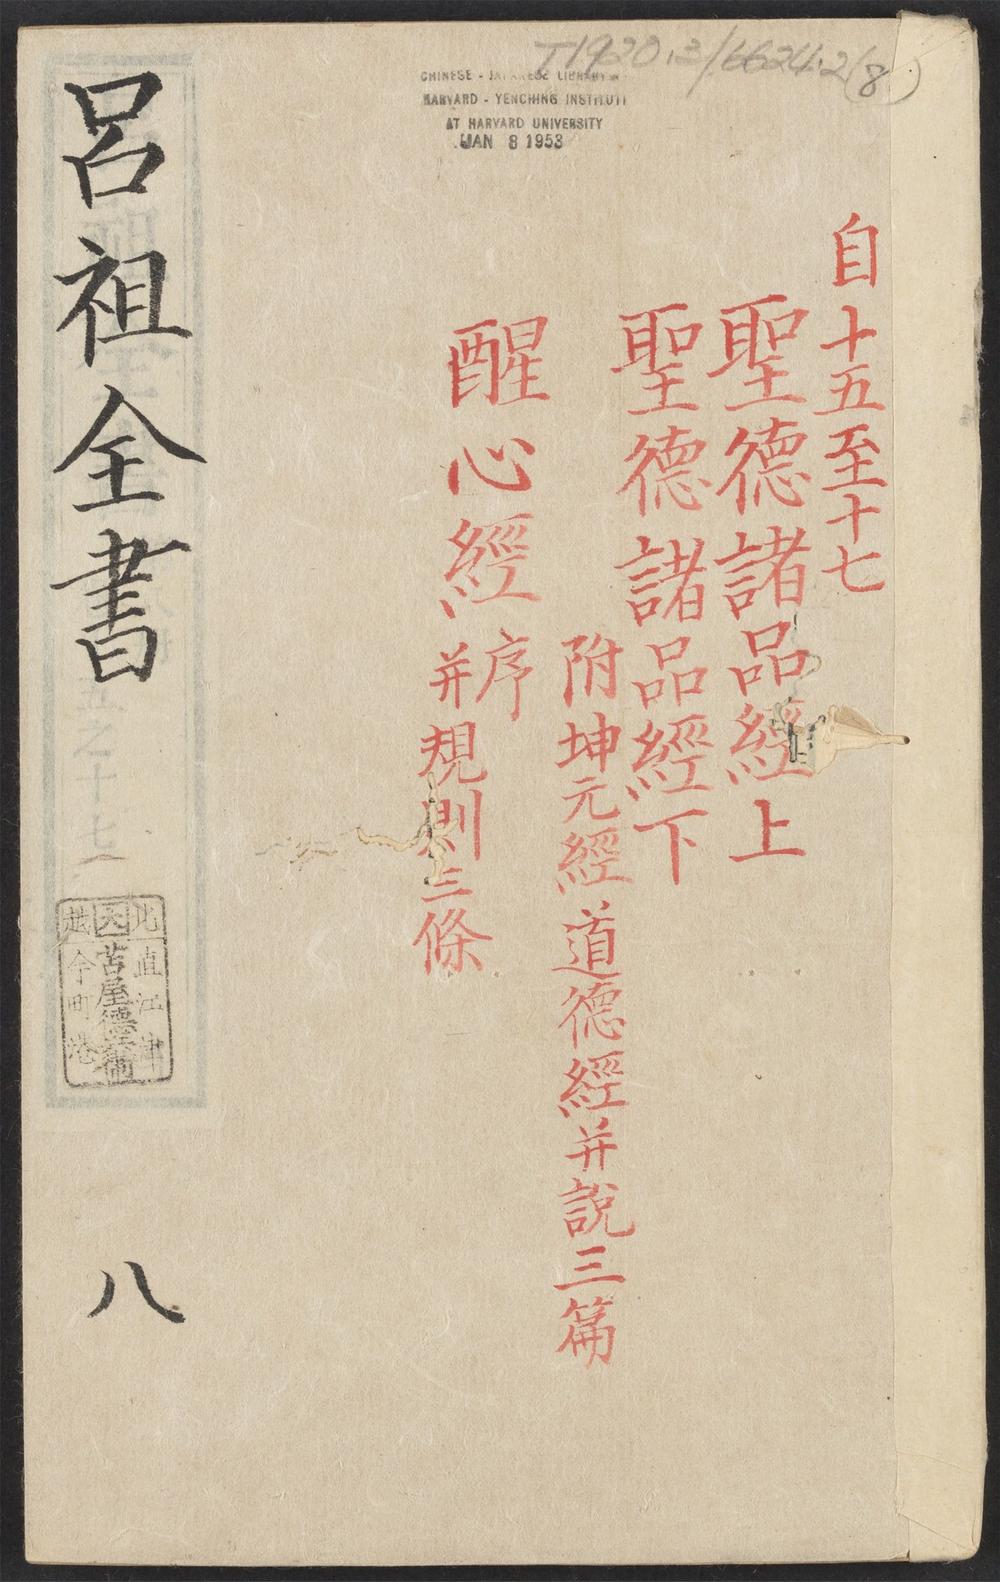 T1920.2/6624.2(8)
CHINESE - JAPANESE LIBRARY
HARVARD - YENCHING INSTITUTE
AT HARVARD UNIVERSITY
JAN 8 1953
自十五至十七
聖德諸品經上
聖德諸品經下
附坤元經 道德經并說三篇
醒心經序
并規則三條
呂祖全書
八
北 直江津
越 今町港
苫屋德